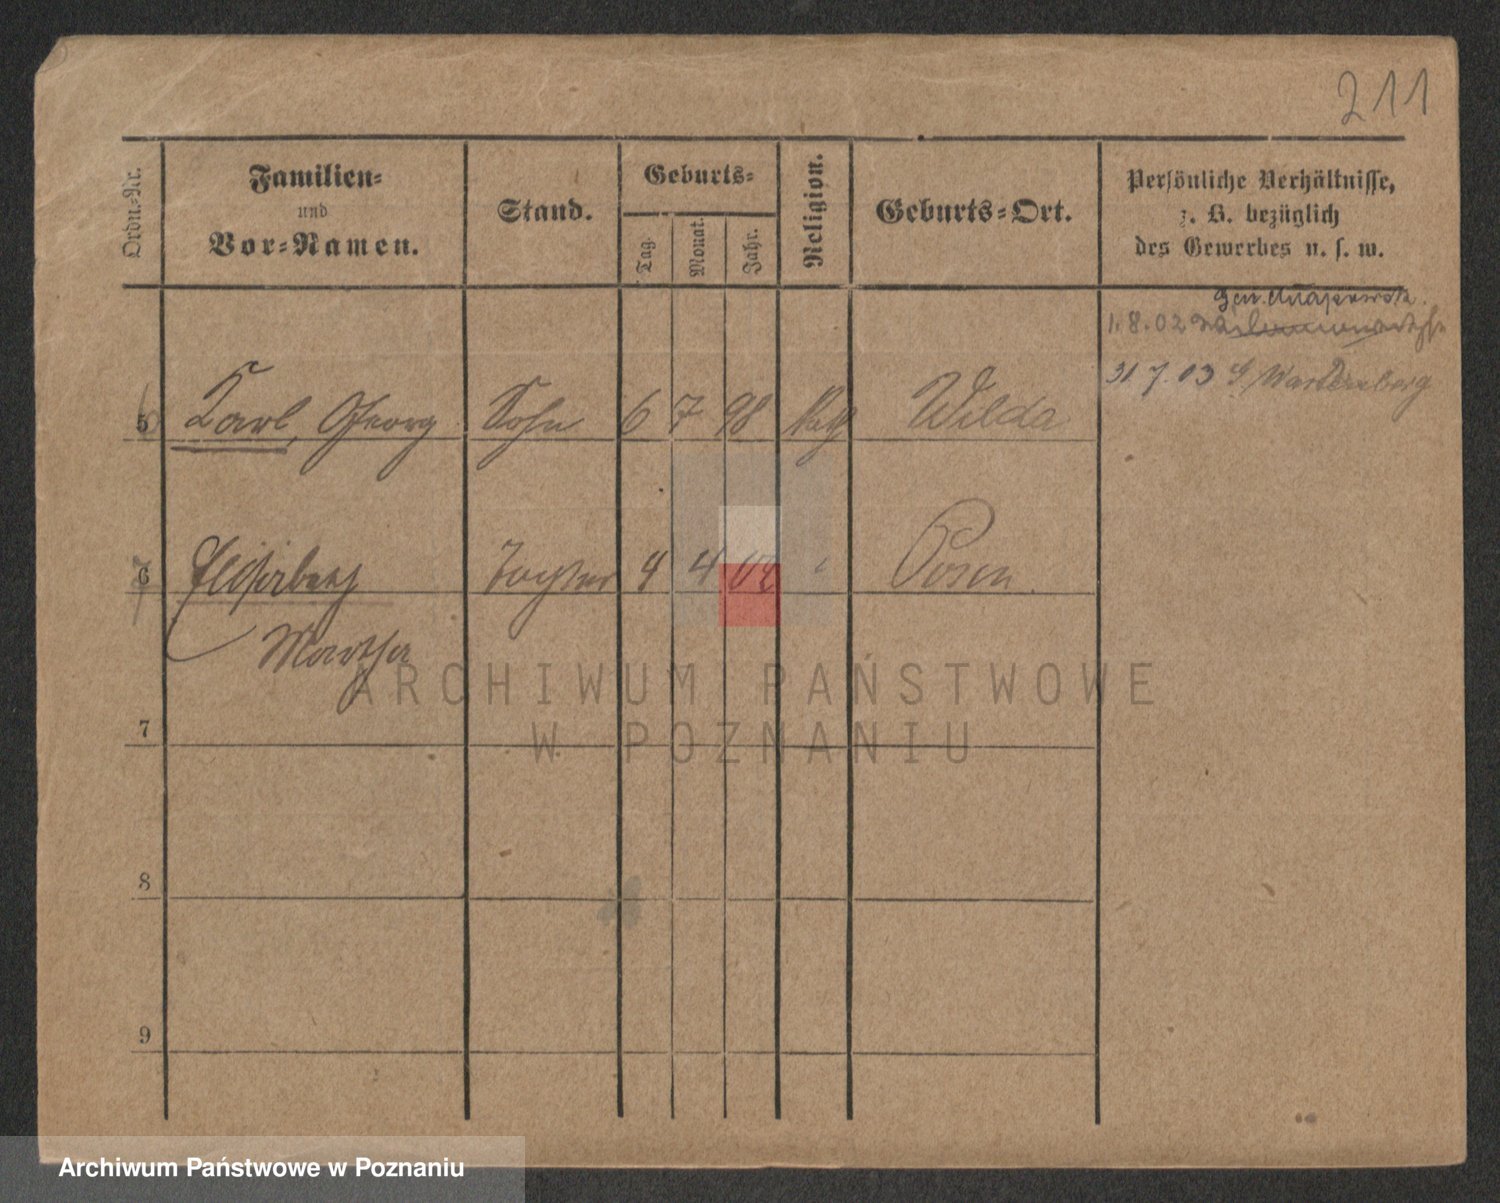 211
Ordn.-Nr.
Familien-
und
Vor-Namen.
Stand.
Geburts-
Tag.
Monat.
Jahr.
Religion.
Geburts-Ort.
Persönliche Verhältnisse,
z. B. bezüglich
des Gewerbes u. s. w.
1.8.02
31 7.03 Wartenberg
5 Karl, Georg Sohn 6 7 98 Kath Wilda
6 Elisabeth Tochter 4 4 02 " Posen
Martha
7
8
9
ARCHIWUM PAŃSTWOWE
W POZNANIU
Archiwum Państwowe w Poznaniu